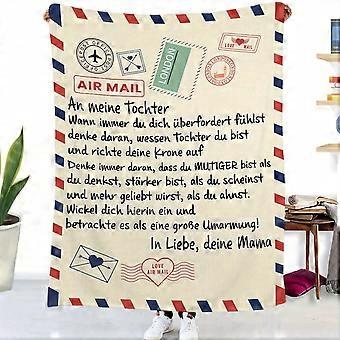 LOVE MAIL
LONDON
AIR MAIL
An meine Tochter
Wann immer du dich überfordert fühlst
denke daran, wessen Tochter du bist
und richte deine Krone auf
Denke immer daran, dass du MUTIGER bist als
du denkst, stärker bist, als du scheinst
und mehr geliebt wirst, als du ahnst.
Wickel dich hierin ein und
betrachte es als eine große Umarmung!
In Liebe, deine Mama
LOVE
AIR MAIL